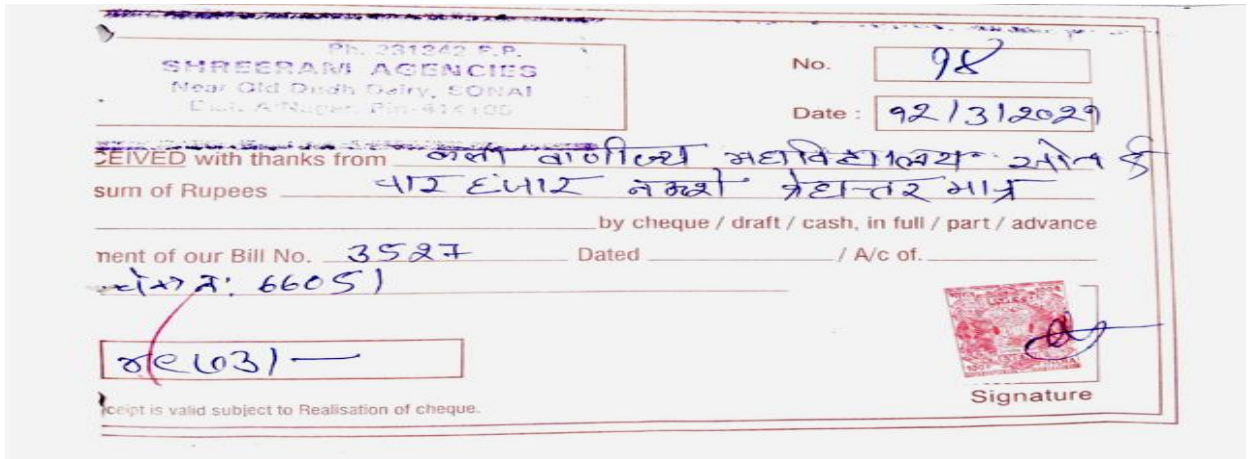 Ph. 231242 P.P.
SHREERAM AGENCIES
Near Old Dudh Dairy, SONAI
No. १४
Date : १२/३/२०२१
CEIVED with thanks from कला वाणीज्य महाविद्यालय सोनई
sum of Rupees चार हजार नऊशे त्रेहात्तर मात्र
by cheque / draft / cash, in full / part / advance
ment of our Bill No. 3527 Dated / A/c of.
चेक नं: 66051
४९७३/—
ceipt is valid subject to Realisation of cheque.
Signature